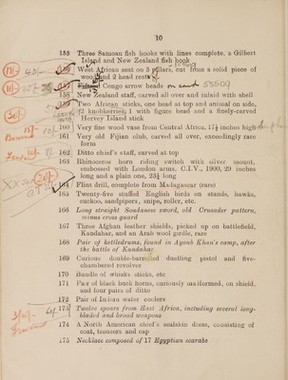 10
155 Three Samoan fish hooks with lines complete, a Gilbert
Island and New Zealand fish hook
West African seat on 3 pillars, cut from a solid piece of
wood and 2 head rests
Congo arrow heads on card
158 New Zealand staff, carved all over and inlaid with shell
159 Two African sticks, one head at top and animal on side,
2 knobkerries; 1 with figure head and a finely-carved
Hervey Island stick
160 Very fine wood vase from Central Africa, 17½ inches high
161 Very old Fijian club, carved all over, exceedingly rare
form
162 Ditto chief's staff, carved at top
163 Rhinoceros horn riding switch with silver mount,
embossed with London arms, C.I.V., 1900, 29 inches
long and a plain one, 23½ long
164 Flint drill, complete from Madagascar (rare)
165 Twenty-five stuffed English birds on stands, hawks,
cuckoo, sandpipers, snipe, roller, etc.
166 Long straight Soudanese sword, old Crusader pattern,
minus cross guard
167 Three Afghan leather shields, picked up on battlefield,
Kandahar, and an Arab wool girdle, rare
168 Pair of kettledrums, found in Ayoub Khan's camp, after
the battle of Kandahar
169 Curious double-barrelled duelling pistol and five-
chambered revolver
170 Bundle of whisks, sticks, etc
171 Pair of black buck horns, curiously malformed, on shield,
and four pairs of ditto
172 Pair of Indian water coolers
173 Twelve spears from East Africa, including several long-
bladed and broad weapons
174 A North American chief's sealskin dress, consisting of
coat, trousers and cap
175 Necklace composed of 17 Egyptian scarabs